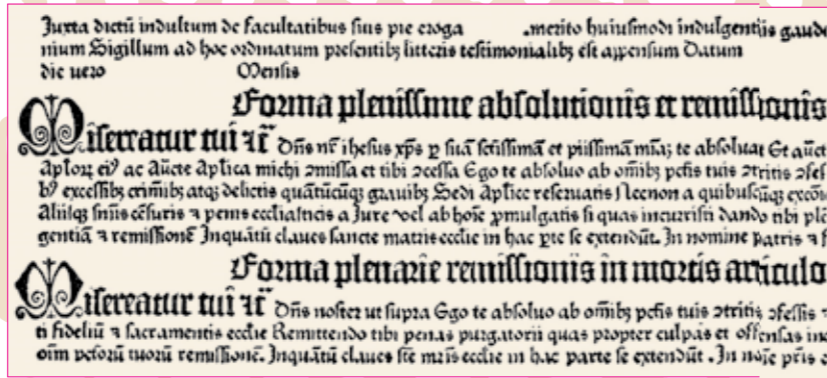 Juxta dictū indultum de facultatibus suis pie eroga .merito huiusmodi indulgentiis gaude
nium Sigillum ad hoc ordinatum presentibꝫ litteris testimonialibꝫ est appensum Datum
die uero Mensis
Forma plenissime absolutionis et remissionis
Misereatur tui ⁊ c̄ Dn̄s nr̄ ihesus xp̄s ꝑ suā sctīssimā et piissimā mīaꝫ te absoluat Et auct
Apl̓oꝝ ei⁹ ac Aucte Apl̓ica michi ↄmissa et tibi ↄcessa Ego te absoluo ab om̄ibꝫ pctīs tuis ↄtritis ↄfes
b⁹ excessibꝫ crimībꝫ atqꝫ delictis quātūcūqꝫ grauibꝫ Sedi Apl̓ice reseruatis Necnon a quibuscūqꝫ excōi
Aliisqꝫ sn̄iis cēsuris ⁊ penis eccl̓iasticis a Jure vel ab hoīe ꝓmulgatis si quas incurristi dando tibi plē
gentiā ⁊ remissionē Inquātū claues sancte matris eccl̓ie in hac ꝑte se extendūt. In nomine patris ⁊ f
Forma plenarie remissionis in mortis articulo
Misereatur tui ⁊ c̄ Dn̄s noster ut supra Ego te absoluo ab om̄ibꝫ pctīs tuis ↄtritis ↄfessis ⁊
ti fideliū ⁊ sacramentis eccl̓ie Remittendo tibi penas purgatorii quas propter culpas et offensas in
oīm pctōrū tuorū remissionē. Inquātū claues scē mr̄is eccl̓ie in hac parte se extendūt. In noīe pr̄is ⁊